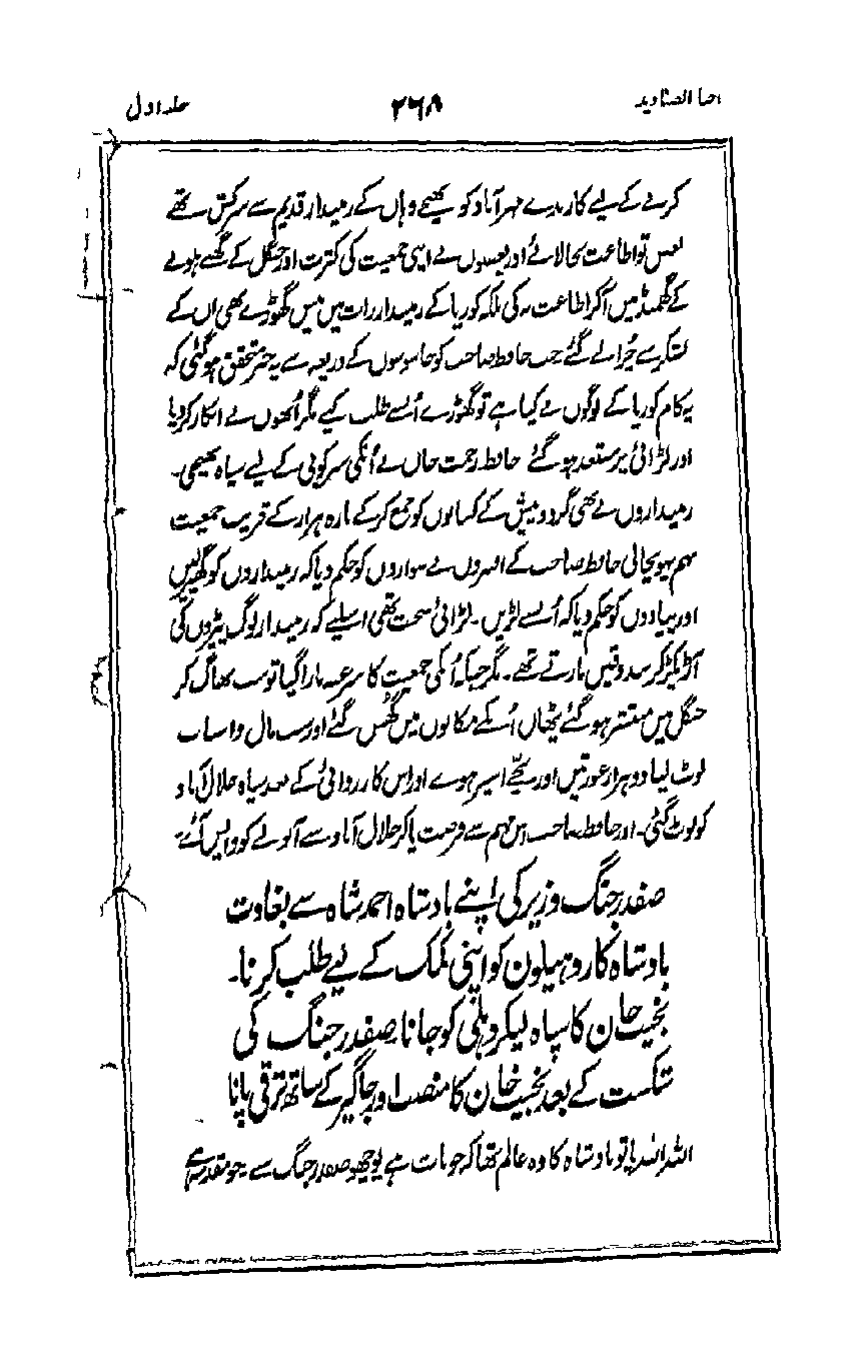 اخبار الصنادید ۲۶۸ جلد اول
کرنے کے لیے کارندے مہرآباد کو بھیجے وہاں کے زمیندار قدیم سے سرکش تھے
بعض تو اطاعت بجا لائے اور بعضوں نے اپنی جمعیت کی کثرت اور جنگل کے گھنے ہونے
کے گھمنڈ میں آکر اطاعت نہ کی بلکہ کوریا کے زمیندار رات میں بیس گھوڑے بھی اُن کے
لشکر سے چُرا لے گئے جب حافظ صاحب کو جاسوسوں کے ذریعہ سے یہ خبر متحقق ہوگئی کہ
یہ کام کوریا کے لوگوں نے کیا ہے تو گھوڑے اُنسے طلب کیے مگر اُنھوں نے انکار کردیا
اور لڑائی پر مستعد ہوگئے حافظ رحمت خاں نے اُنکی سرکوبی کے لیے سپاہ بھیجی۔
زمینداروں نے بھی گرد و پیش کے کسانوں کو جمع کرکے بارہ ہزار کے قریب جمعیت
بہم پہونچائی حافظ صاحب کے افسروں نے سواروں کو حکم دیا کہ زمینداروں کو گھیریں
اور پیادوں کو حکم دیا کہ اُنسے لڑیں۔ لڑائی سخت تھی اسلیے کہ زمیندار لوگ پیڑوں کی
آڑ پکڑکر بندوقیں مارتے تھے۔ مگر جبکہ اُنکی جمعیت کا سرغنہ مارا گیا تو سب بھاگ کر
جنگل میں منتشر ہوگئے پٹھان اُنکے مکانوں میں گھس گئے اور سب مال و اسباب
لوٹ لیا دو ہزار عورتیں اور بچے اسیر ہوے اور اس کارروائی کے بعد سپاہ جلال آباد
کو لوٹ گئی۔ اور حافظ صاحب اس مہم سے فرصت پاکر جلال آباد سے آنولے کو واپس آئے۔
صفدر جنگ وزیر کی اپنے بادشاہ احمد شاہ سے بغاوت
بادشاہ کا روہیلون کو اپنی کمک کے لیے طلب کرنا۔
نجیب خان کا سپاہ لیکر دہلی کو جانا صفدر جنگ کی
شکست کے بعد نجیب خان کا منصب اور جاگیر کے ساتھ ترقی پانا
اللہ اللہ یا تو بادشاہ کا وہ عالم تھا کہ جو بات ہے پوچھو صفدر جنگ سے جو مقدمہ ہے